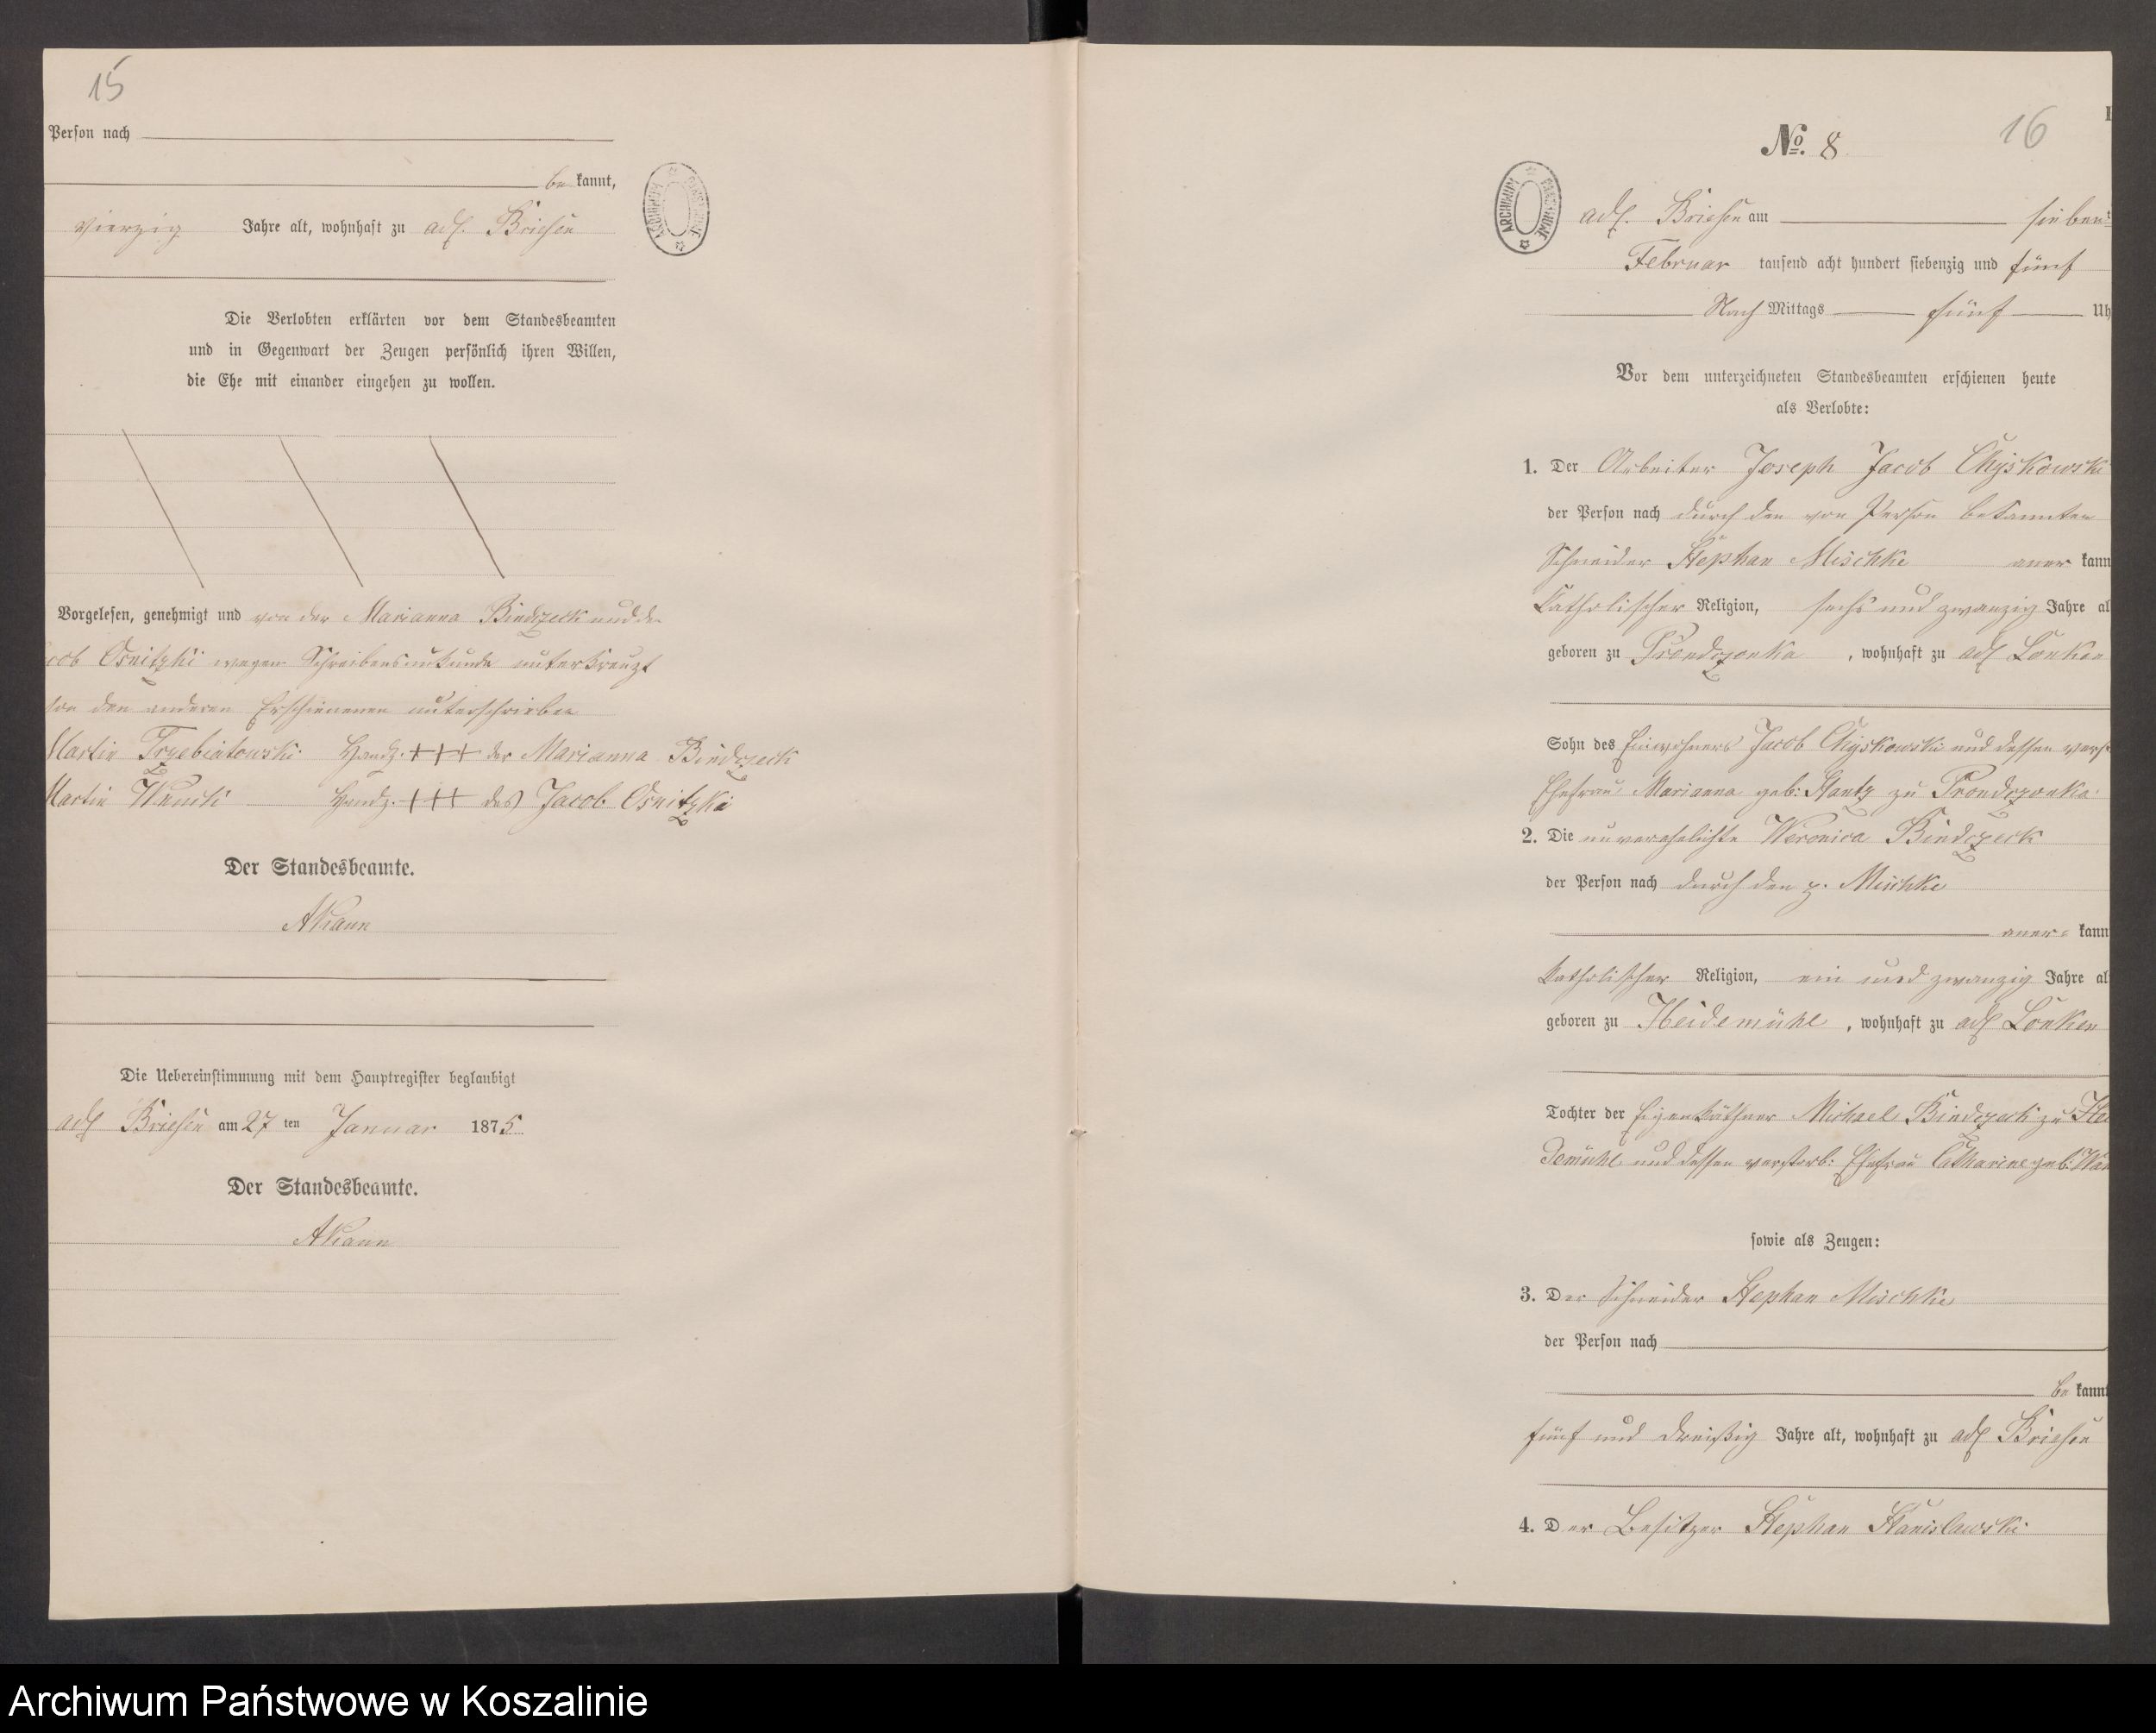 15
Person nach
be kannt,
vierzig Jahre alt, wohnhaft zu adl. Briesen
Die Verlobten erklärten vor dem Standesbeamten
und in Gegenwart der Zeugen persönlich ihren Willen,
die Ehe mit einander eingehen zu wollen.
Vorgelesen, genehmigt und von der Marianna Bindczeck und de
cob Osnitzki wegen Schreibensunkunde unterkreuzt
von den anderen Erschienenen unterschrieben
Martin Trzebiatowski Handz. +++ der Marianna Bindczeck
Martin Handz. +++ des Jacob Osnitzki
Der Standesbeamte.
Die Uebereinstimmung mit dem Hauptregister beglaubigt
adl Briesen am 27 ten Januar 1875.
Der Standesbeamte.
16
No. 8
ARCHIWUM PAŃSTWOWE
adl. Briesen am sieben
Februar tausend acht hundert siebenzig und fünf
Nach Mittags fünf Uh
Vor dem unterzeichneten Standesbeamten erschienen heute
als Verlobte:
1. Der Arbeiter Joseph Jacob Chyskowski
der Person nach durch den von Person bekannten
Schneider Stephan Mischke aner kann
katholischer Religion, sechs und zwanzig Jahre al
geboren zu Prondzonka, wohnhaft zu adl Lonken
Sohn des Einwohners Jacob Chyskowski und dessen verst
Ehefrau Marianna geb: Stantz zu Prondzonka
2. Die unverehelichte Weronica Bindczeck
der Person nach durch den p. Mischke
aner= kann
katholischer Religion, ein und zwanzig Jahre al
geboren zu Heidemühl, wohnhaft zu adl Lonken
Tochter der Eigenkäthner Michael Bindczeck zu Hei
demühl und dessen verstorb: Ehefrau Catharine geb: Wan
sowie als Zeugen:
3. Der Schneider Stephan Mischke
der Person nach
be kannt
fünf und dreißig Jahre alt, wohnhaft zu adl Briesen
4. Der Besitzer Stephan Stanislawski
Archiwum Państwowe w Koszalinie